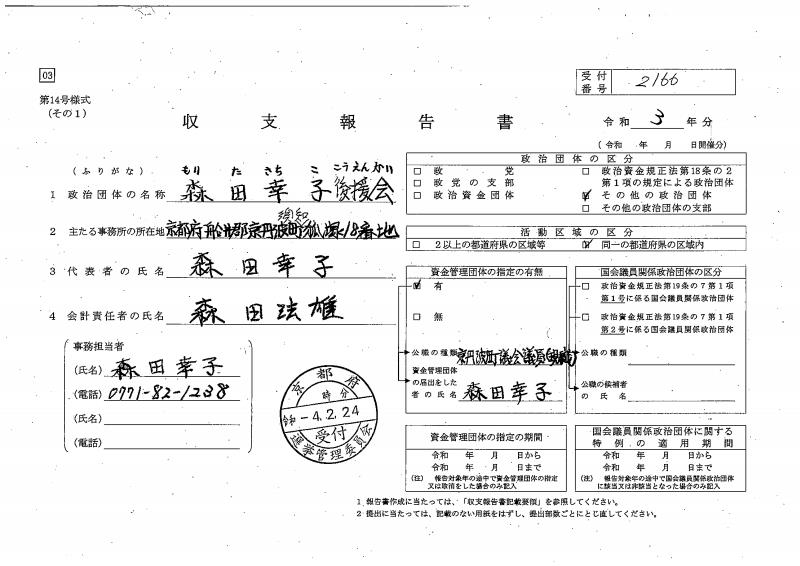 03
受付番号 2166
第14号様式
(その1)
収支報告書
令和 3 年分
(令和 年 月 日開催分)
(ふりがな) もりた さちこ こうえんかい
1 政治団体の名称 森田幸子後援会
2 主たる事務所の所在地 京都府船井郡京丹波町須知 18番地
3 代表者の氏名 森田幸子
4 会計責任者の氏名 森田法雄
事務担当者
(氏名) 森田幸子
(電話) 0771-82-1238
(氏名)
(電話)
京都府
時分
令和-4.2.24
受付
選挙管理委員会
政治団体の区分
□ 政党
□ 政党の支部
□ 政治資金団体
□ 政治資金規正法第18条の2
第1項の規定による政治団体
☑ その他の政治団体
□ その他の政治団体の支部
活動区域の区分
□ 2以上の都道府県の区域等
☑ 同一の都道府県の区域内
資金管理団体の指定の有無
☑ 有
□ 無
公職の種類 京丹波町議会議員(現職)
資金管理団体
の届出をした
者の氏名 森田幸子
国会議員関係政治団体の区分
□ 政治資金規正法第19条の7第1項
第1号に係る国会議員関係政治団体
□ 政治資金規正法第19条の7第1項
第2号に係る国会議員関係政治団体
公職の種類
公職の候補者
の氏名
資金管理団体の指定の期間
令和 年 月 日から
令和 年 月 日まで
(注) 報告対象年の途中で資金管理団体の指定
又は取消をした場合のみ記入
国会議員関係政治団体に関する
特例の適用期間
令和 年 月 日から
令和 年 月 日まで
(注) 報告対象年の途中で国会議員関係政治団体
に該当又は非該当となった場合のみ記入
1 報告書作成に当たっては、「収支報告書記載要領」を参照してください。
2 提出に当たっては、記載のない用紙をはずし、提出部数ごとにとじ直してください。